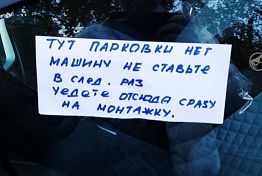 ТУТ ПАРКОВКИ НЕТ
МАШИНУ НЕ СТАВЬТЕ
В СЛЕД. РАЗ
УЕДЕТЕ ОТСЮДА СРАЗУ
НА МОНТАЖКУ.